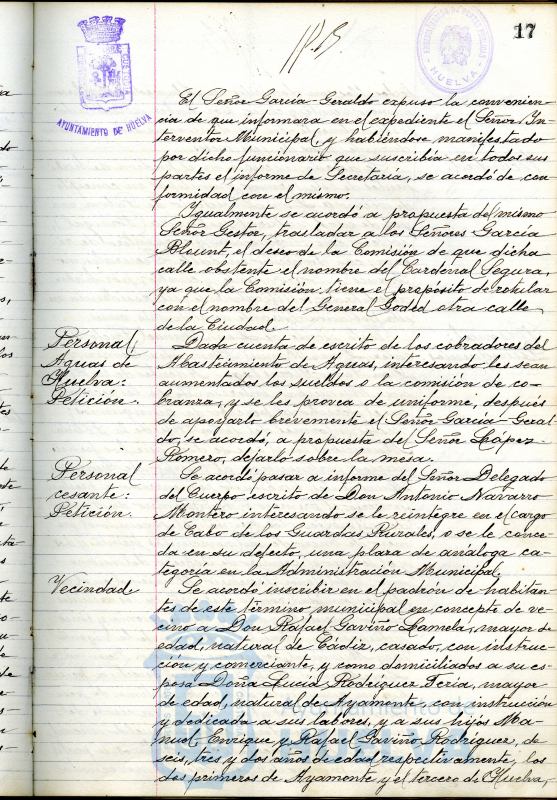 17
AYUNTAMIENTO DE HUELVA
HUELVA
El Señor García-Geraldo expuso la convenien-
cia de que informara en el expediente el Señor In-
terventor Municipal, y habiéndose manifestado
por dicho funcionario que suscribia en todas sus
partes el informe de Secretaría, se acordó de con-
formidad con el mismo.
Igualmente se acordó a propuesta del mismo
Señor Gestor, trasladar a los Señores García
Blount, el deseo de la Comisión de que dicha
calle obstente el nombre del Cardenal Segura,
ya que la Comisión tiene el propósito de rotular
con el nombre del General Goded otra calle
de la Ciudad.
Personal
Aguas de
Huelva:
Petición.
Dada cuenta de escrito de los cobradores del
Abastecimiento de Aguas, interesando les sean
aumentados los sueldos o la comisión de co-
branza, y se les provea de uniforme; después
de apoyarlo brevemente el Señor García-Geral-
do, se acordó, a propuesta del Señor López-
Romero, dejarlo sobre la mesa.
Personal
cesante:
Petición.
Se acordó pasar a informe del Señor Delegado
del Cuerpo escrito de Don Antonio Navarro
Montero interesando se le reintegre en el cargo
de Cabo de los Guardas Rurales, o se le conce-
da en su defecto, una plaza de análoga ca-
tegoría en la Administración Municipal.
Vecindad.
Se acordó inscribir en el padrón de habitan-
tes de este término municipal en concepto de ve-
cino a Don Rafael Gaviño Lamela, mayor de
edad, natural de Cádiz, casado, con instruc-
ción y comerciante, y como domiciliados a su es-
posa Doña Lucía Rodríguez Feria, mayor
de edad, natural de Ayamonte, con instrucción
y dedicada a sus labores, y a sus hijos Ma-
nuel, Enrique y Rafael Gaviño Rodríguez, de
seis, tres y dos años de edad respectivamente, los
dos primeros de Ayamonte y el tercero de Huelva,